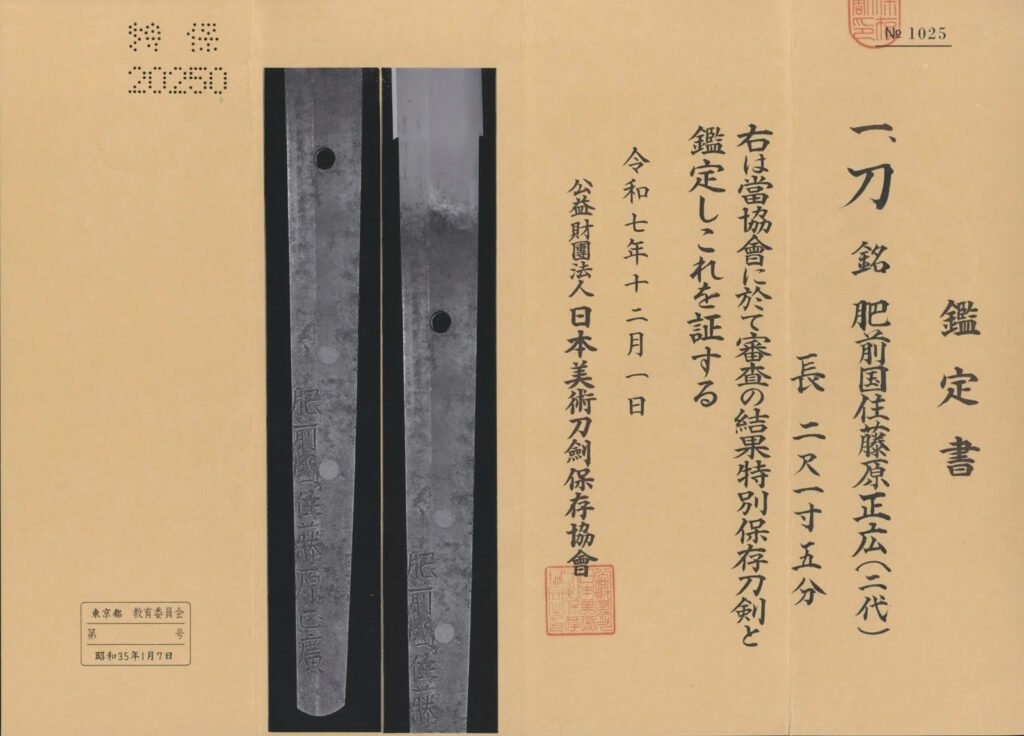 № 1025
鑑定書
一、刀 銘 肥前国住藤原正広(二代)
長 二尺一寸五分
右は當協會に於て審査の結果特別保存刀剣と
鑑定しこれを証する
令和七年十二月一日
公益財團法人日本美術刀劍保存協會
肥前國住藤
肥前國住藤原正廣
特 保
20250
東京都 教育委員会
第 号
昭和35年1月7日